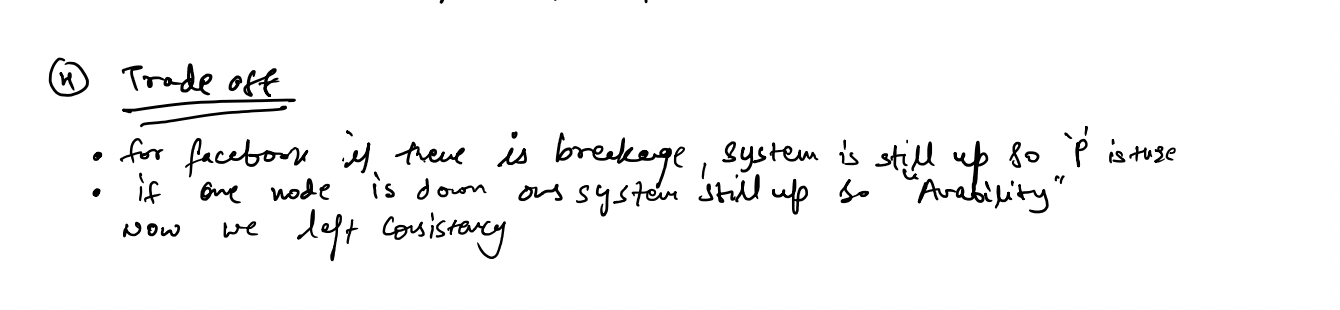 ④ Trade off
• for facebook if there is breakage, system is still up so 'P' is true
• if one node is down our system still up so "Avability"
Now we left Consistency